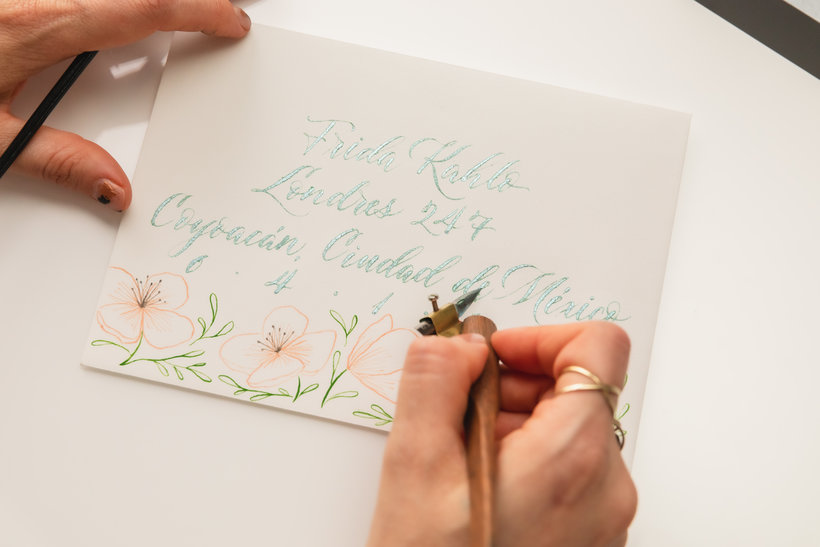 Frida Kahlo
Londres 247
Coyoacán, Ciudad de México
0 4 1